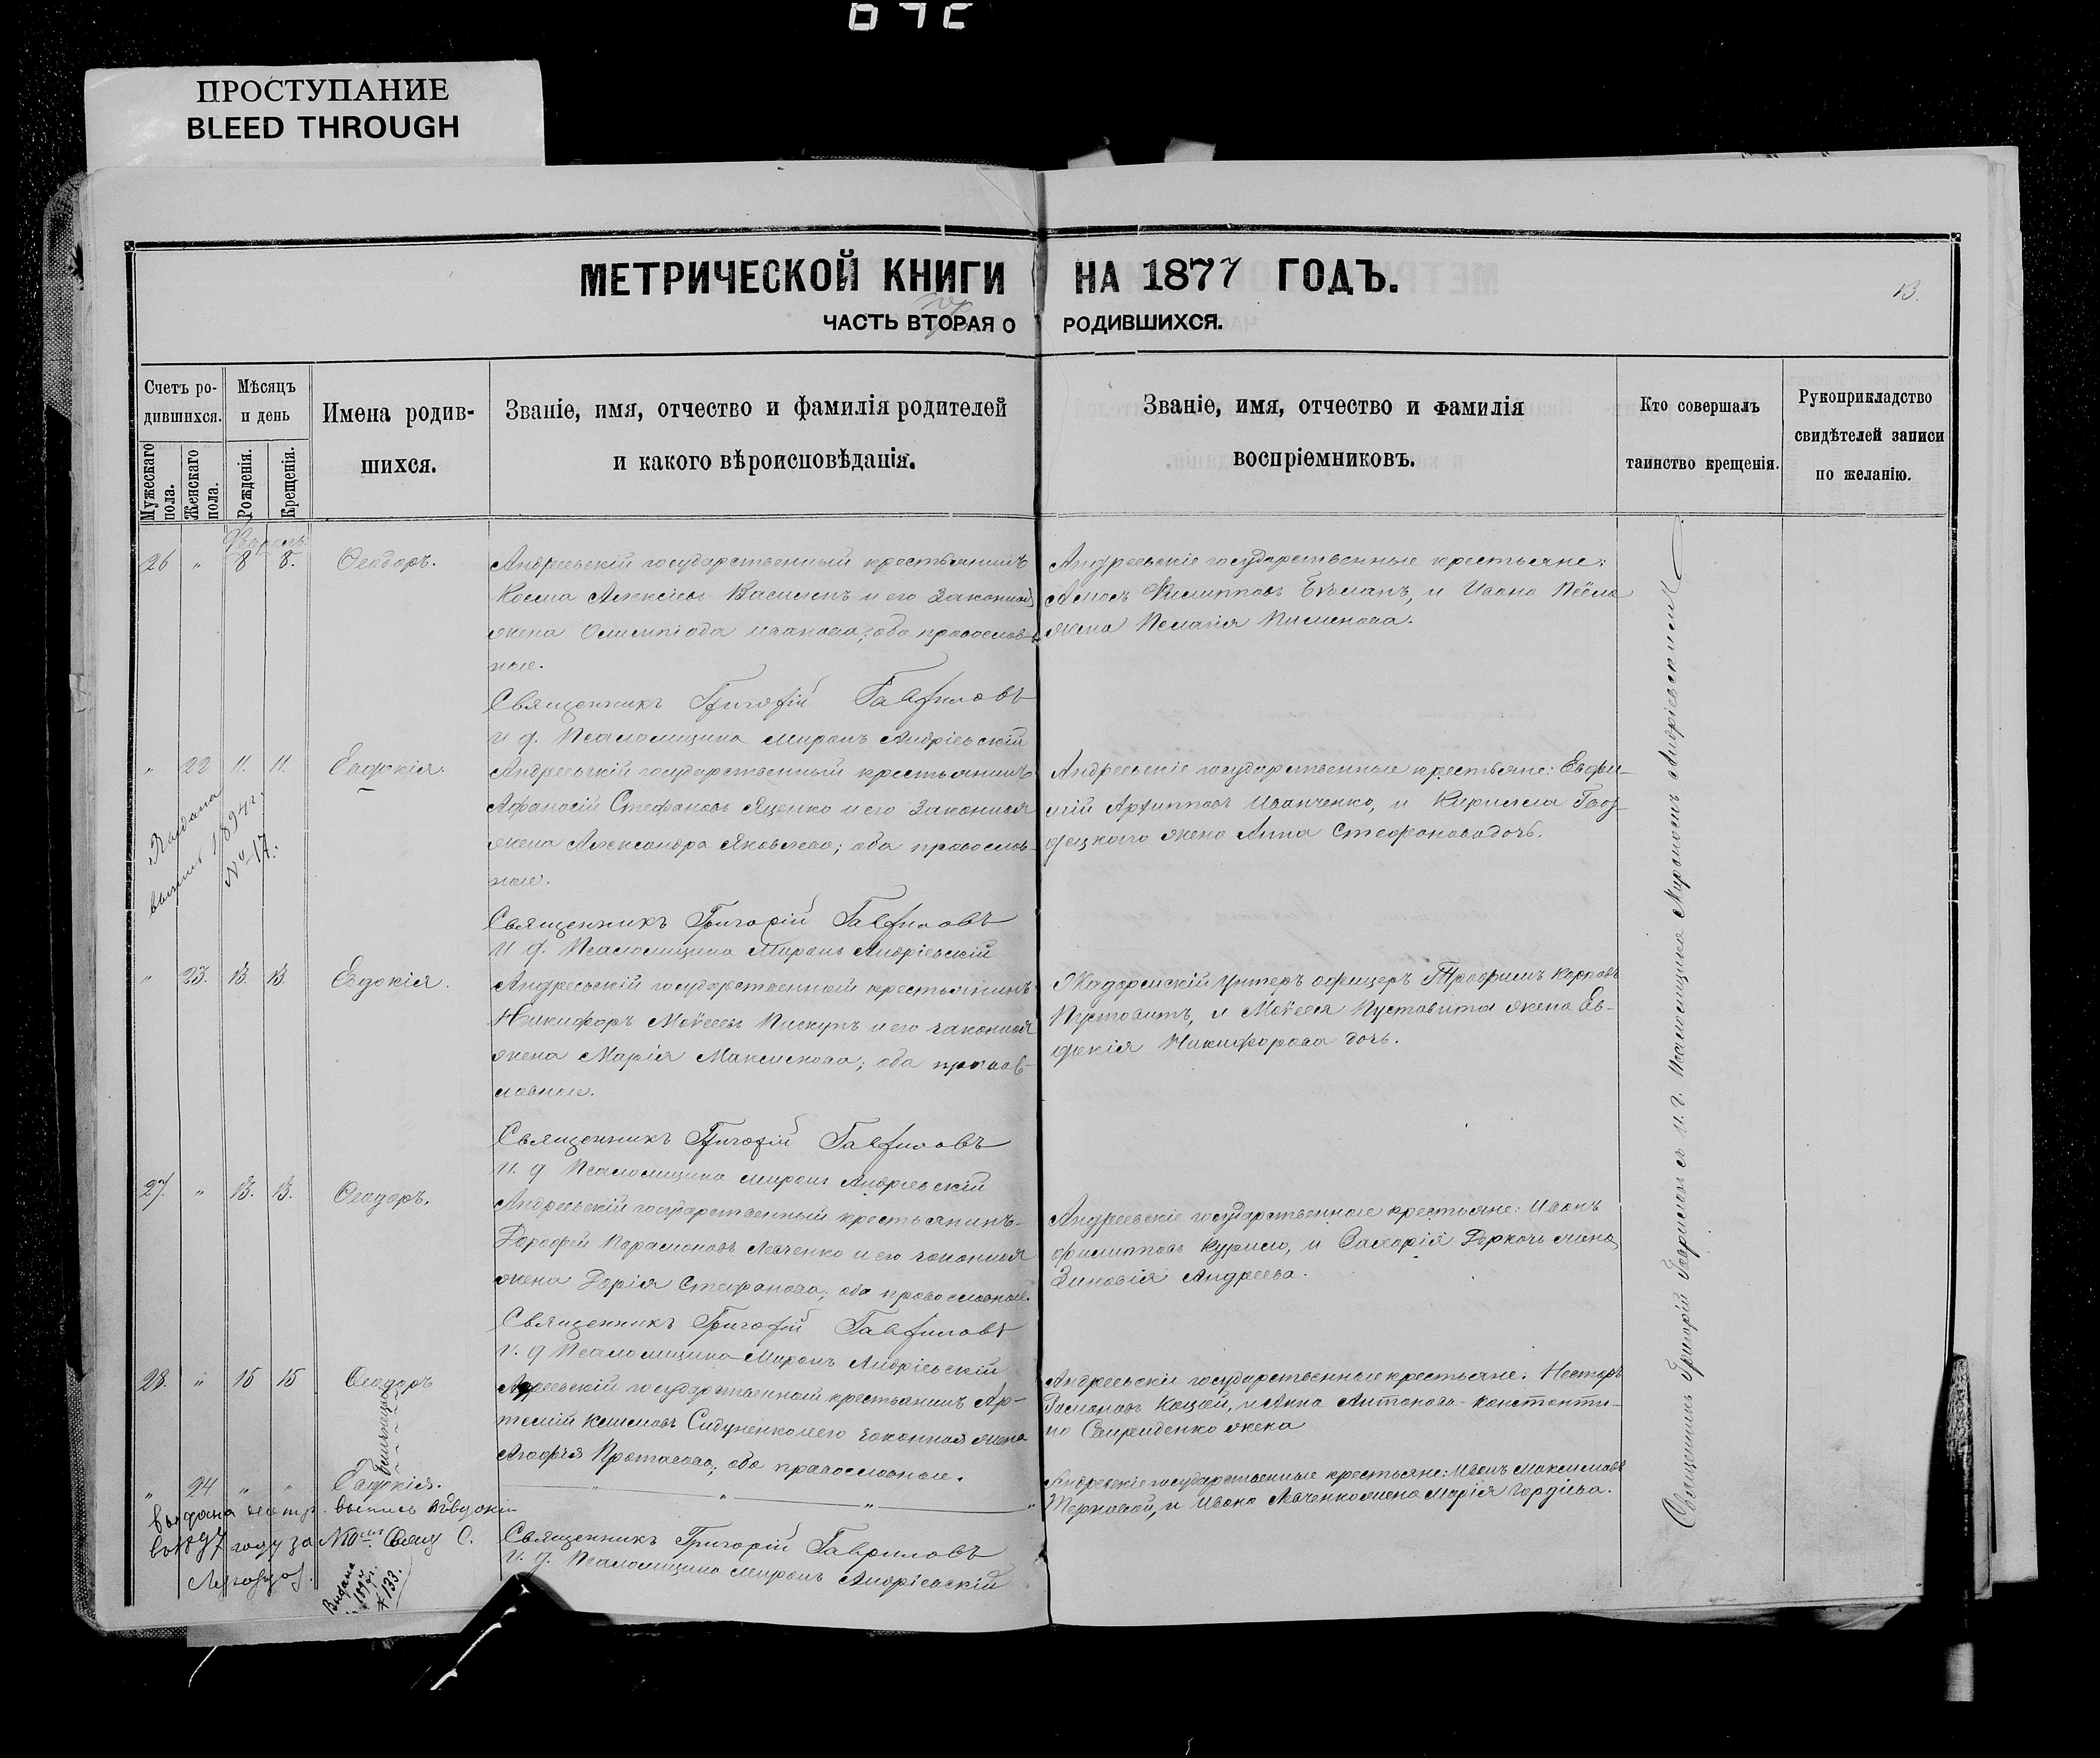 ПРОСТУПАНИЕ
BLEED THROUGH
МЕТРИЧЕСКОЙ КНИГИ НА 1877 ГОДЪ.
13.
ЧАСТЬ ВТОРАЯ О РОДИВШИХСЯ.
Счетъ ро-
дившихся.
Мужескаго пола.
Женскаго пола.
Мѣсяцъ
и день
Рожденія.
Крещенія.
Имена родив-
шихся.
Званіе, имя, отчество и фамилія родителей
и какого вѣроисповѣданія.
Званіе, имя, отчество и фамилія
воспріемниковъ.
Кто совершалъ
таинство крещенія.
Рукоприкладство
свидѣтелей записи
по желанію.
Февраль
26 " 8 8. Ѳеодоръ.
Андреевскій государственный крестьянинъ
Косма Алексіевъ и его законная
жена Олимпіада Иванова; оба православ-
ные.
Священникъ Григорій Гавриловъ
и д. Псаломщика Миронъ Андріевскій
Андреевскіе государственные крестьяне:
Филипповъ и Ивана
жена Пелагія Пименова.
" 22 11. 11. Евдокія.
Выдана
выпись 1894 г.
№ 17.
Андреевскій государственный крестьянинъ
Афанасій Стефановъ Яценко и его законная
жена Александра Яковлева; оба православ-
ные.
Священникъ Григорій Гавриловъ
И д. Псаломщика Миронъ Андріевскій
Андреевскіе государственные крестьяне: Евфи-
мій Архипповъ Иванченко, и Кирилла Гвоз-
децкаго жена Анна Стефанова дочь.
" 23. 13. 13. Евдокія.
Андреевскій государственный крестьянинъ
Никифоръ Моѵсеевъ Пискунъ и его законная
жена Марія Максимова; оба правос-
лавные.
Священникъ Григорій Гавриловъ
И. д Псаломщика Миронъ Андріевскій
унтеръ офицеръ Трофимъ Карповъ
Пустовитъ, и Моѵсея Пустовита жена Ев-
докія Никифорова дочь.
27. " 13. 13. Ѳеодоръ.
Андреевскій государственный крестьянинъ
Дорофей Парамоновъ Левченко и его законная
жена Дарія Стефанова; оба православные.
Священникъ Григорій Гавриловъ
И. д Псаломщика Миронъ Андріевскій
Андреевскіе государственные крестьяне: Иванъ
Филипповъ Курило, и Захарія Деркачъ жена
Зиновія Андреева.
28. " 15 15 Ѳеодоръ
Близнецы
Андреевскій государственный крестьянинъ Ар-
темій Климовъ и его законная жена
Агафія Протасова; оба православные.
Андреевскіе государственные крестьяне: Несторъ
Кацай, и Анна Антонова Константи-
на Свириденко жена
" 24. " " Евдокія.
Андреевскіе государственные крестьяне: Иванъ Максимовъ
Терновой, и Ивана Левченко жена Марія Гордіева.
Выдана метр. выпись Евдокіи
году за №
Священникъ Григорій Гавриловъ
И. д. Псаломщика Миронъ Андріевскій
Выдана
1897 г.
№ 133.
Священникъ Григорій Гавриловъ съ и. д. Псаломщика Мирономъ Андріевскимъ